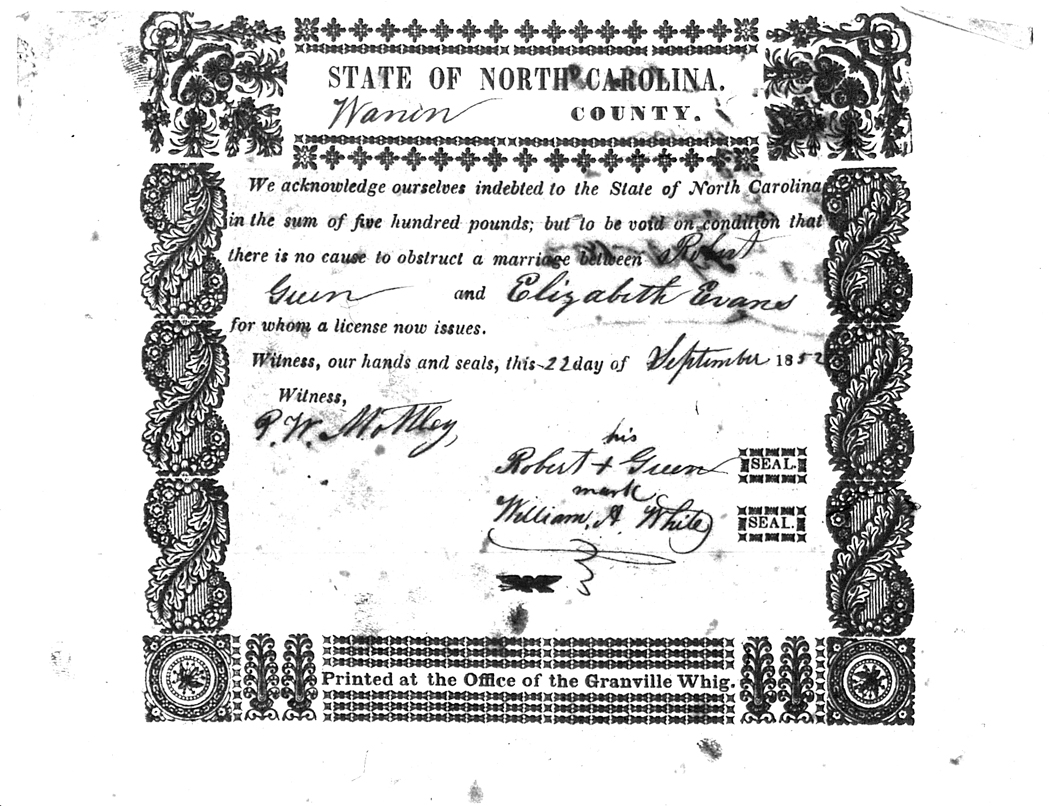 STATE OF NORTH CAROLINA.
Warren COUNTY.
We acknowledge ourselves indebted to the State of North Carolina
in the sum of five hundred pounds; but to be void on condition that
there is no cause to obstruct a marriage between Robert
Green and Elizabeth Evans
for whom a license now issues.
Witness, our hands and seals, this 22 day of September 1852
Witness,
P. W. Mottley,
his
Robert + Green SEAL.
mark
William. A. White SEAL.
Printed at the Office of the Granville Whig.